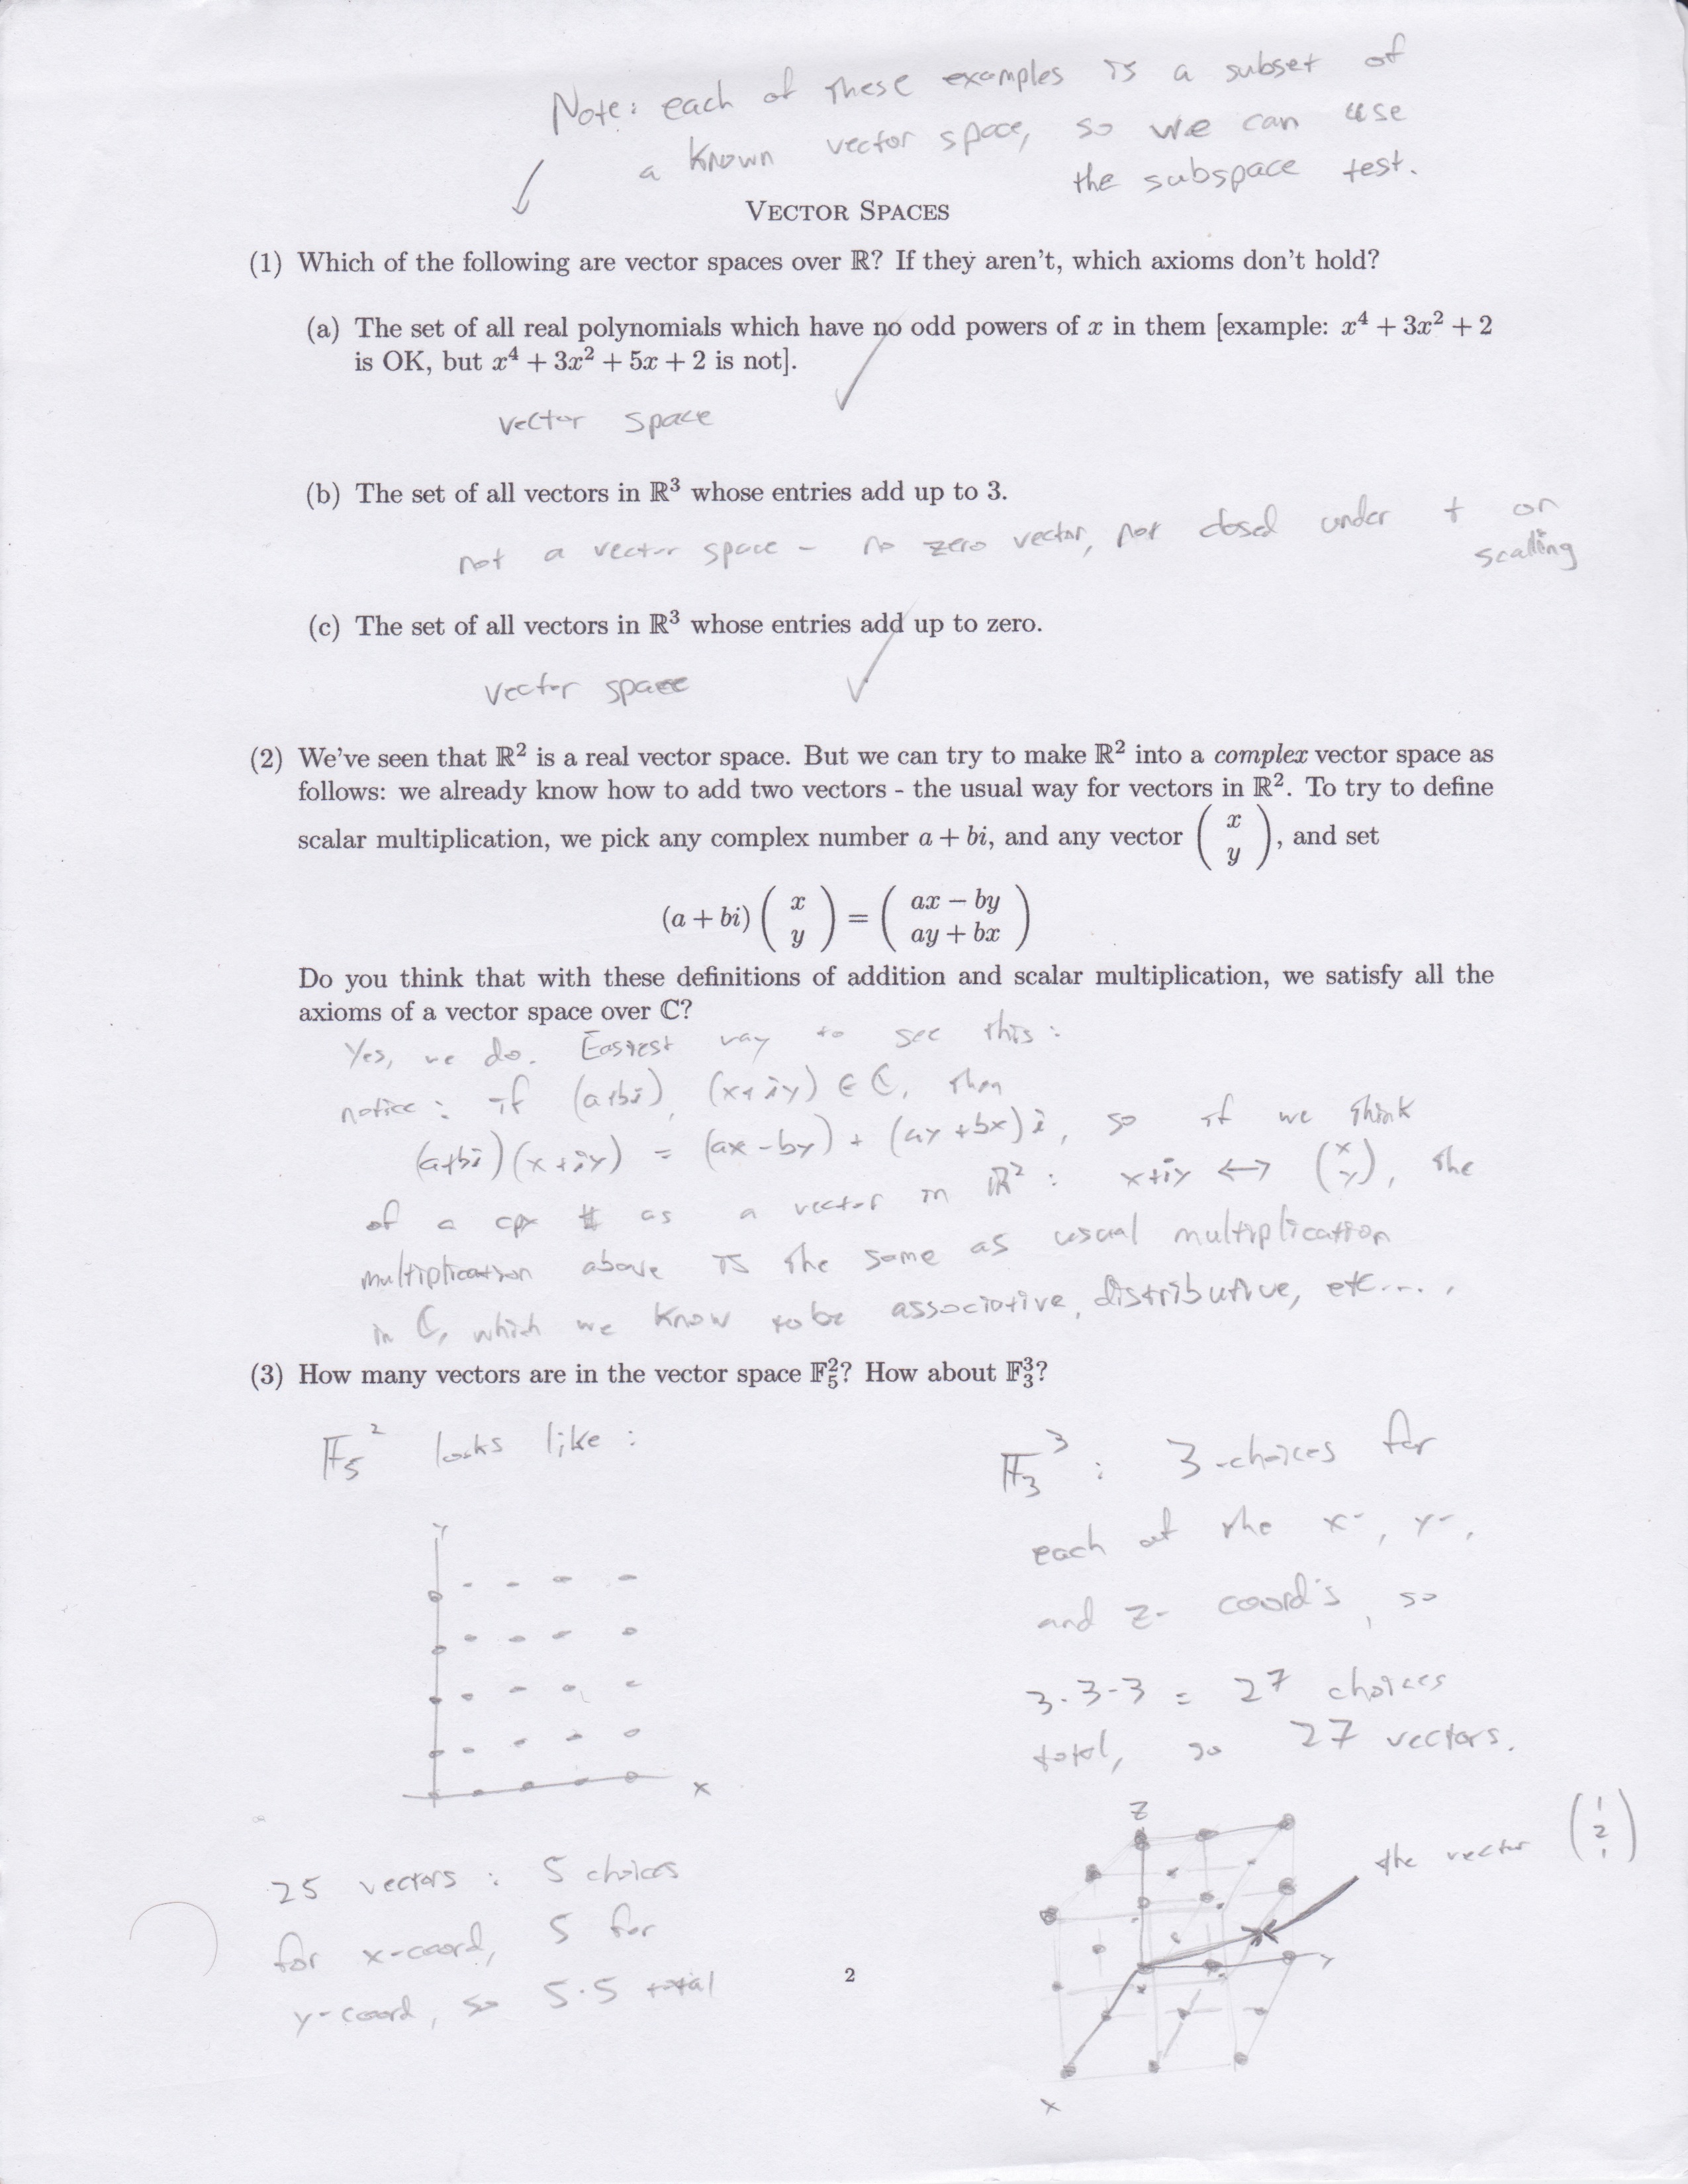 Note: each of these examples is a subset of
a known vector space, so we can use
the subspace test.
VECTOR SPACES
(1) Which of the following are vector spaces over ℝ? If they aren't, which axioms don't hold?
(a) The set of all real polynomials which have no odd powers of x in them [example: x⁴ + 3x² + 2
is OK, but x⁴ + 3x² + 5x + 2 is not].
vector space
(b) The set of all vectors in ℝ³ whose entries add up to 3.
not a vector space - no zero vector, not closed under + or
scaling
(c) The set of all vectors in ℝ³ whose entries add up to zero.
vector space
(2) We've seen that ℝ² is a real vector space. But we can try to make ℝ² into a complex vector space as
follows: we already know how to add two vectors - the usual way for vectors in ℝ². To try to define
scalar multiplication, we pick any complex number a + bi, and any vector ( x y ), and set
(a + bi) ( x y ) = ( ax − by ay + bx )
Do you think that with these definitions of addition and scalar multiplication, we satisfy all the
axioms of a vector space over ℂ?
Yes, we do. Easiest way to see this:
notice: if (a+bi), (x+iy) ∈ ℂ, then
(a+bi)(x+iy) = (ax-by) + (ay+bx)i, so if we think
of a cpx # as a vector in ℝ²: x+iy ↔ ( x y ), the
multiplication above is the same as usual multiplication
in ℂ, which we know to be associative, distributive, etc....
(3) How many vectors are in the vector space 𝔽₅²? How about 𝔽₃³?
𝔽₅² looks like:
y
x
25 vectors: 5 choices
for x-coord, 5 for
y-coord, so 5·5 total
𝔽₃³: 3-choices for
each of the x-, y-,
and z- coord's, so
3·3·3 = 27 choices
total, so 27 vectors.
z
the vector ( 1 2 1 )
y
x
2